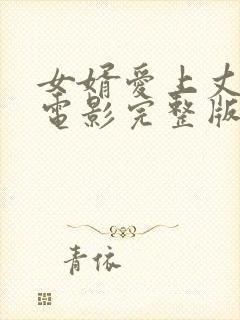 女婿爱上丈
电影完整版
青依